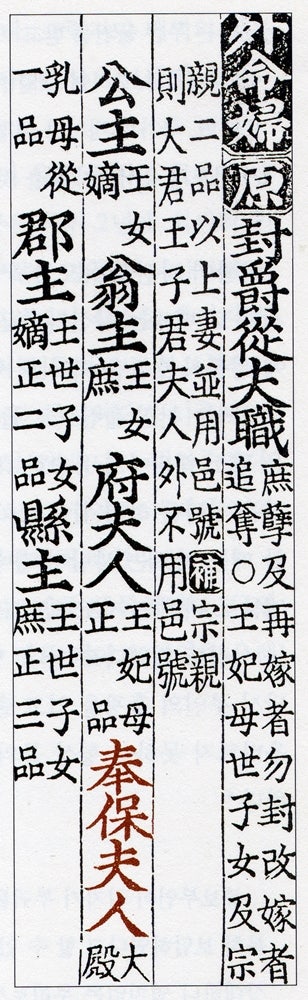 外命婦 原 封爵從夫職 庶孽及再嫁者勿封改嫁者追奪○王妃母世子女及宗
親二品以上妻並用邑號 補 宗親則大君王子君夫人外不用邑號
公主 王女嫡 翁主 王女庶 府夫人 王妃母正一品 奉保夫人 大殿
乳母從一品 郡主 王世子女嫡正二品 縣主 王世子女庶正三品